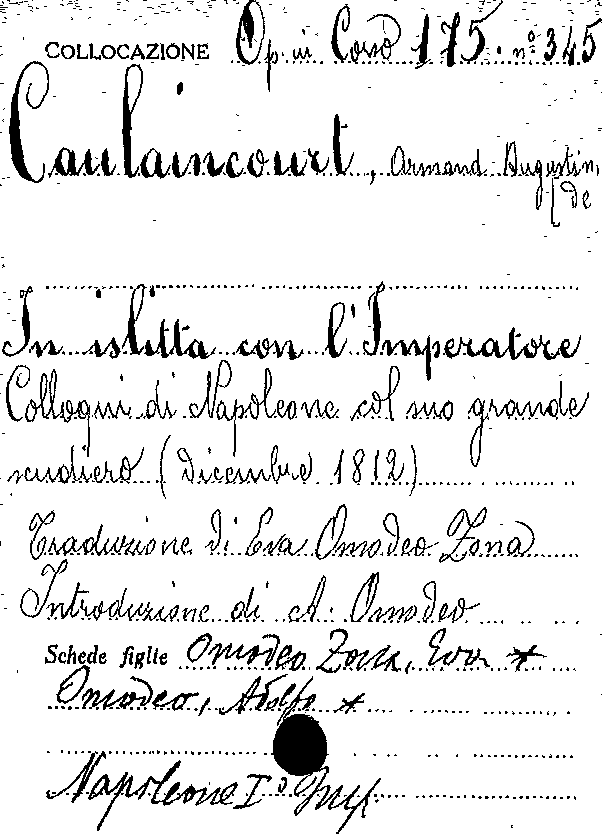 COLLOCAZIONE Op. in Corso 175. nº 345
Caulaincourt, Armand Augustin,
[de
In islitta con l'Imperatore
Colloqui di Napoleone col suo grande
scudiero (dicembre 1812)
Traduzione di Eva Omodeo Zona
Introduzione di A. Omodeo
Schede figlie Omodeo Zona, Eva *
Omodeo, Adolfo *
Napoleone Iº Imp.